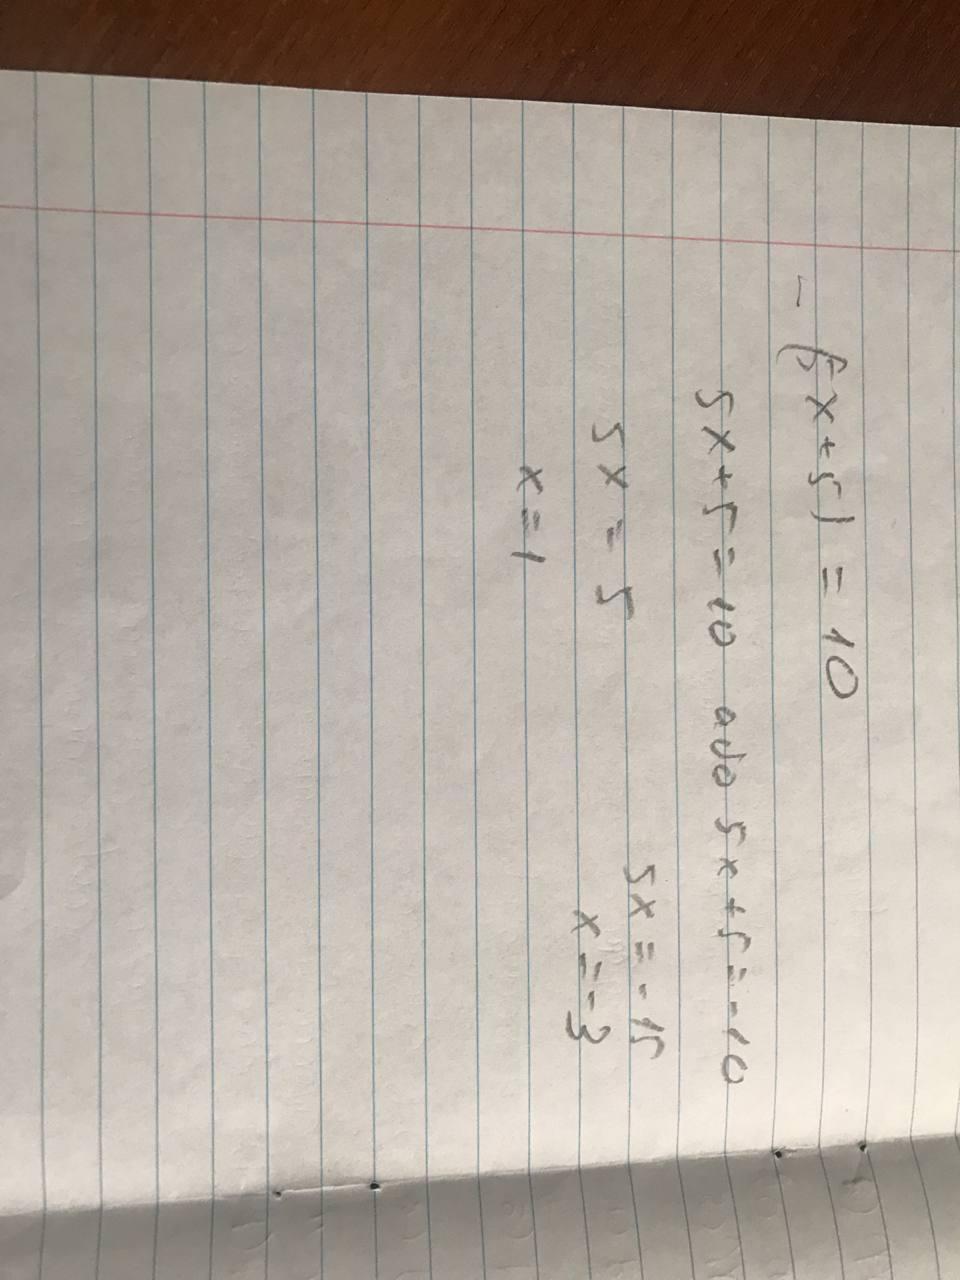 - |5x+5| = 10
5x+5=10 або 5x+5=-10
5x = 5 5x = -15
x=1 x=-3